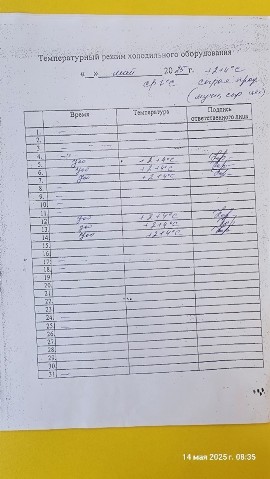 Температурный режим холодильного оборудования
« » май 2025 г. +2+4°C
ср t°C сырая прод
Время Температура Подпись ответственного лица
1.
2.
3.
4.
5. 9оо +2+4°C
6. 9оо +2+4°C
7. 9оо +2+4°C
8.
9.
10.
11.
12. 9оо +2+4°C
13. 9оо +2+4°C
14. 9оо +2+4°C
15.
16.
17.
18.
19.
20.
21.
22.
23.
24.
25.
26.
27.
28.
29.
30.
31.
14 мая 2025 г. 08:35